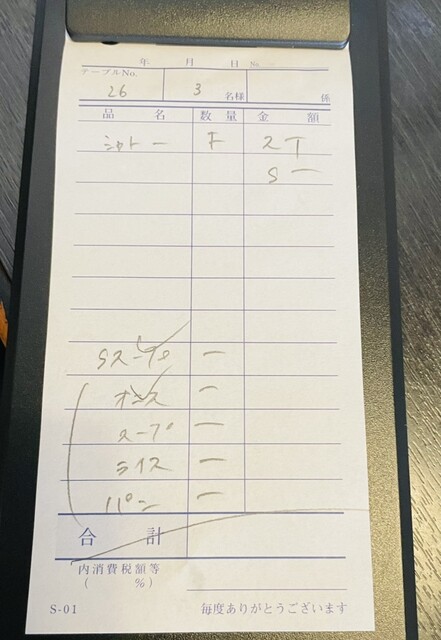 年 月 日 No.
テーブルNo. 26 3 名様 係
品 名 数 量 金 額
シャトー
S一
Sスープ 一
オニス 一
スープ 一
ライス 一
パン 一
合 計
内消費税額等
( %)
S-01 毎度ありがとうございます